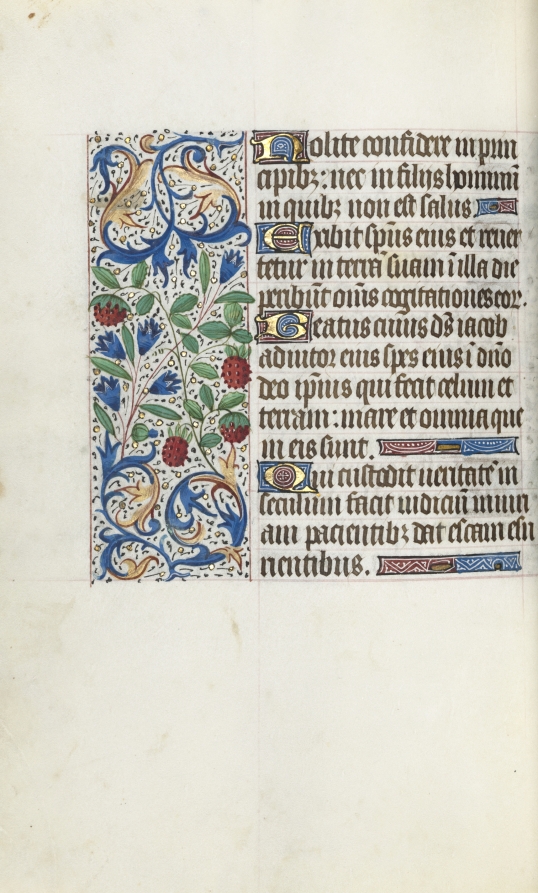 Nolite confidere in prin
cipibz: nec in filijs hominũ
in quibz non est salus
Exibit spũs eius et reuer
tetur in terrã suam ĩ illa die
peribũt oms̃ cogitationes eoꝝ.
Beatus cuius ds̃ iacob
adiutor eius spes eius ĩ dño
deo ip̃ius qui fecit celum et
terram: mare et omnia que
in eis sunt.
Qui custodit ueritatẽ in
seculum facit iudiciũ iniuri
am pacientibz dat escam esu
rientibus.